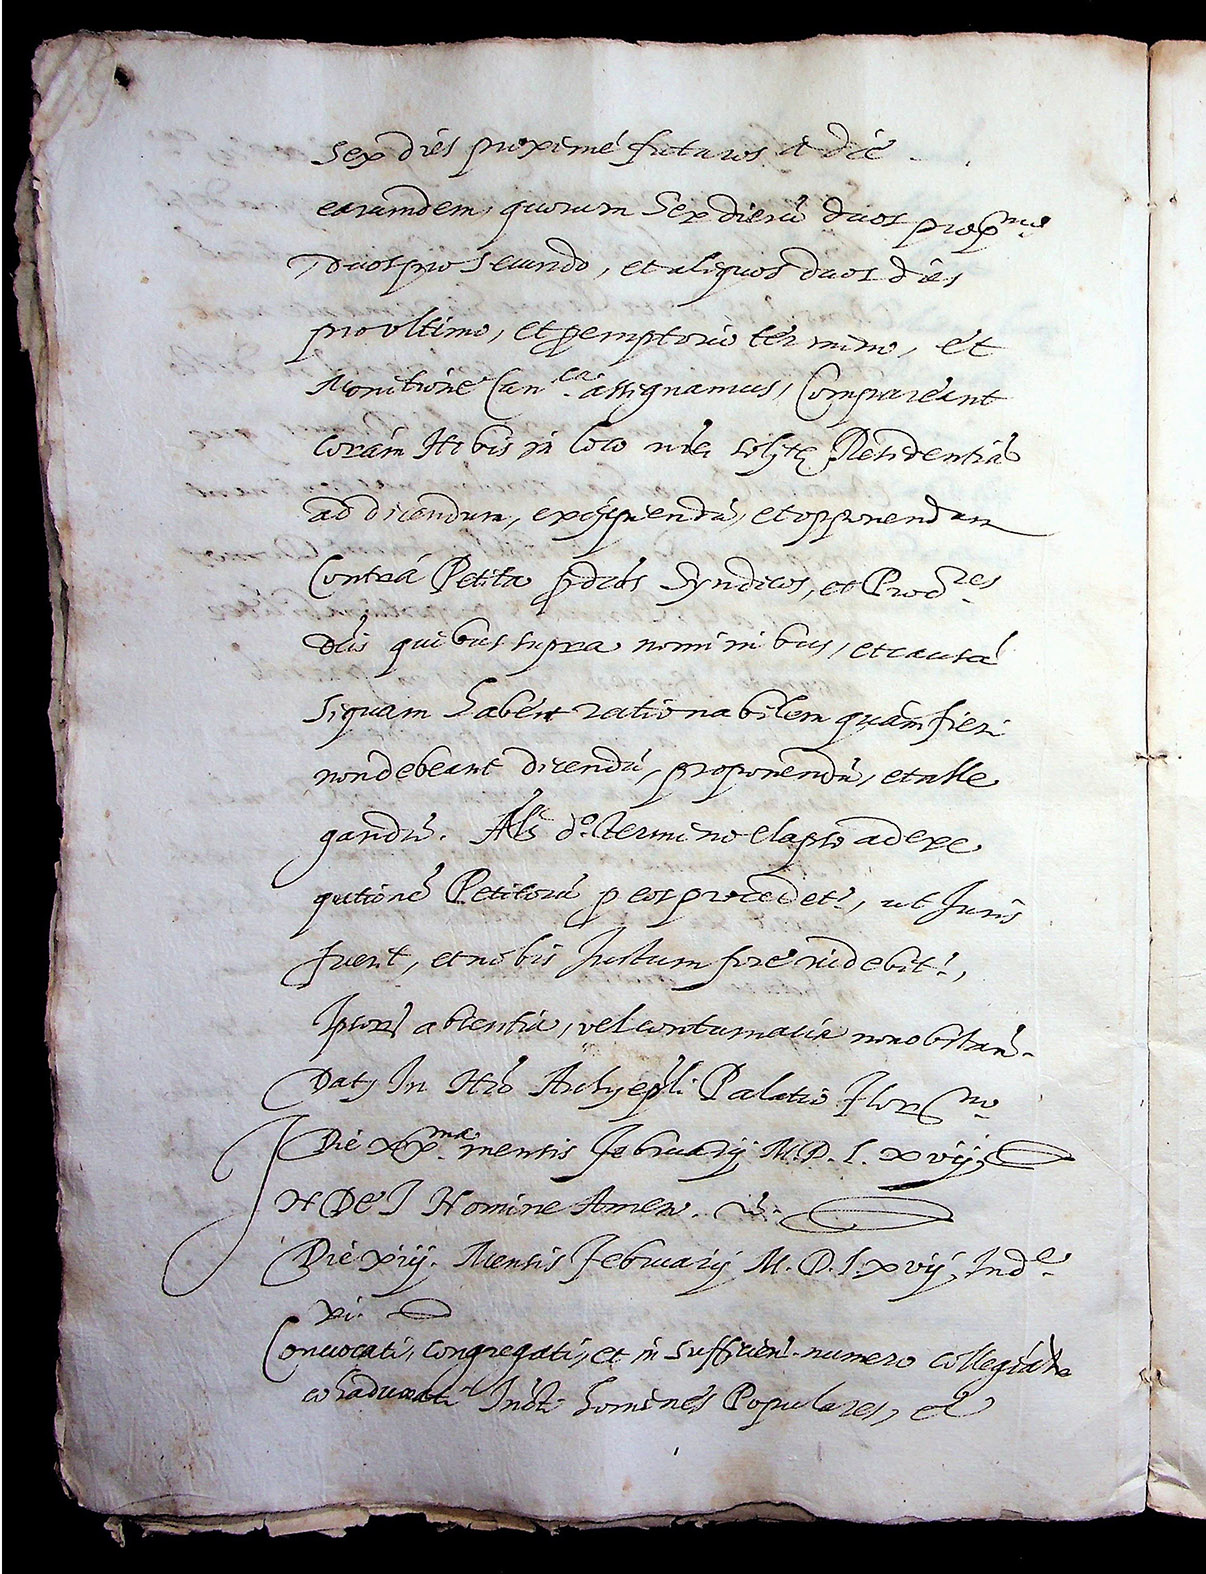 sex dies proximé futuros á die
earumdem, quorum sex dierū duos pro p.mo
Duos pro secundo, et aliquos duos dies
pro ultimo, et peremptorio término, et
Monitione Can.ca assignamus, Compareant
corám Nobis in loco nrē solitę Residentiā
ad dicendum, excipiendū, et opponendum
Contrá Petita p dctos Syndicos, et Proc.res
dctis quibus supra nominibus, et causá
si quam habent rationabilem quám fieri
non debeant dicendū, proponendū, et alle
gandū. Als d.o termino elapso ad exe
qutionē Petitorū p eos procedet.r, ut Juris
fuerit, et nobis Justum foré videbit.r,
Ipsorū absentia, vel contumacia non obstan.
Dat, In Nrō Archyepāli Palatio Flor.no
Dié xx.ma mensis Februarij M.D.L.xvij,
IN DEI Nomine Amen.
Die xiij. Mensis Februarij M.D.L.xvij, Ind.e
xi.
Convocati, congregati, et in sufficien. numero collegiáte
cohadunati Indtī homines Populares, et